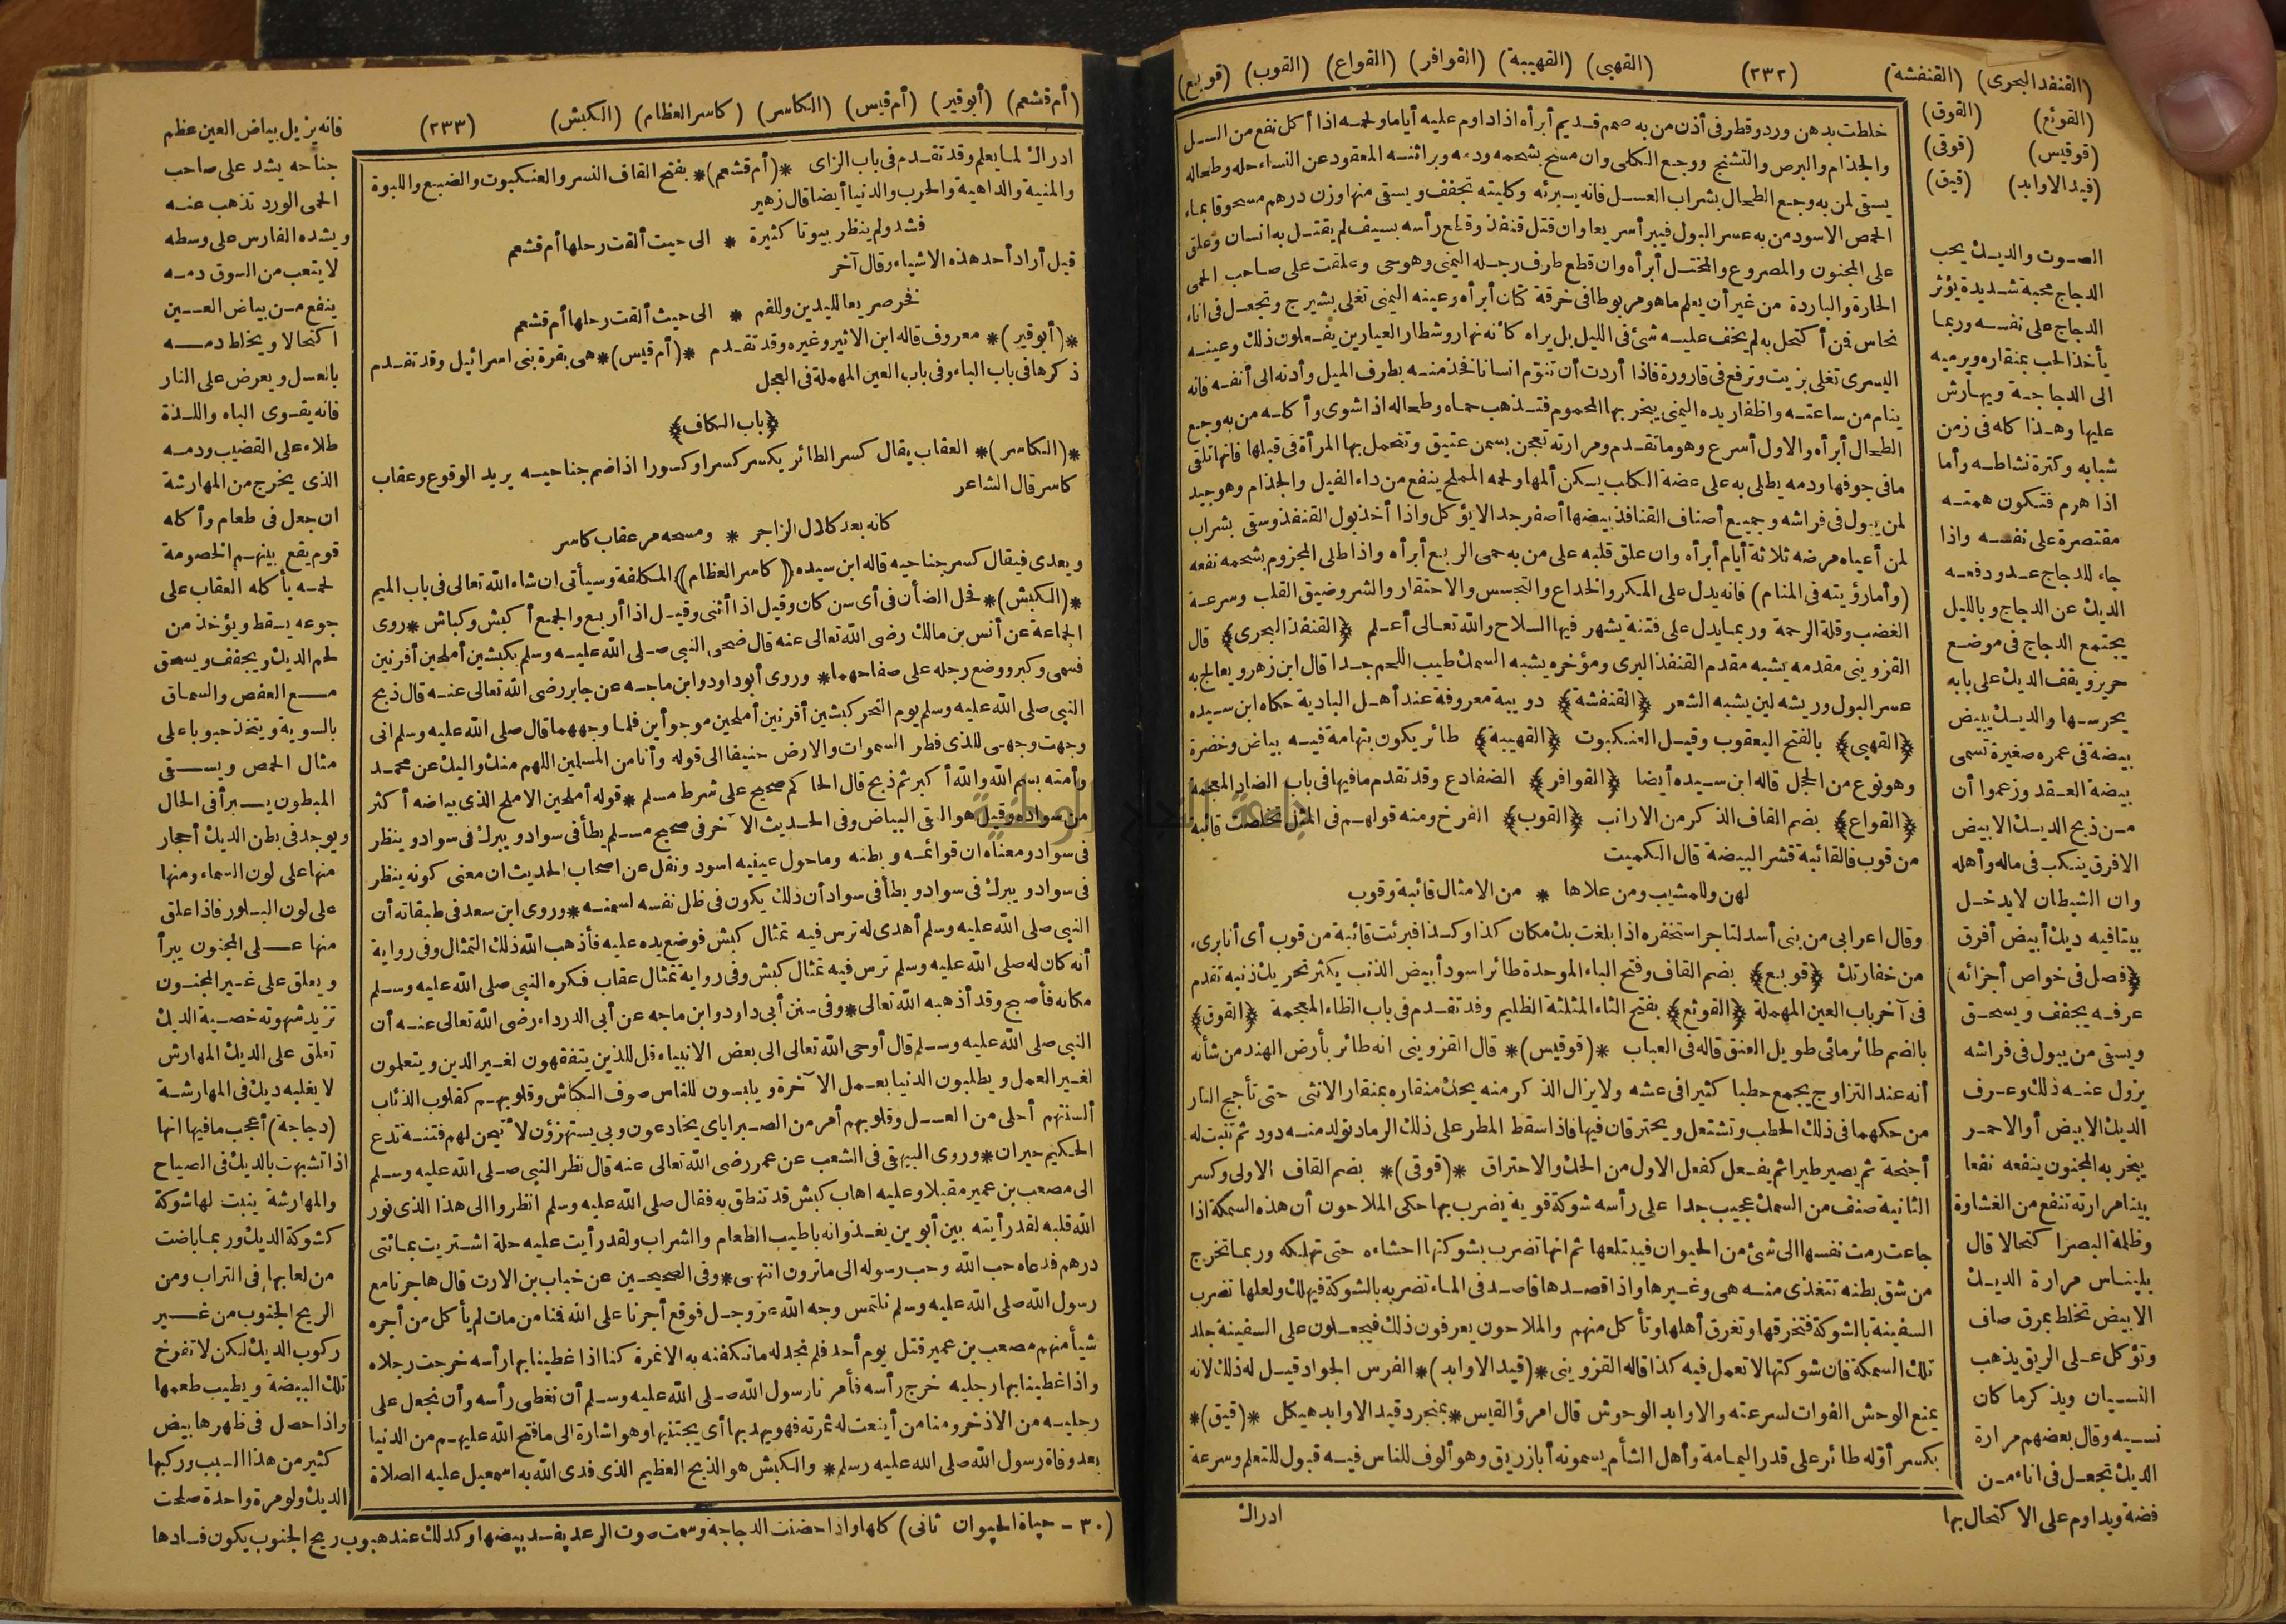 (القنفد البحرى) (القنفشة) (٢٣٢) (القهبى) (القهيبة) (القوافر) (القواع) (القوب) (قوبع)
(القوثع) (القوق)
(قوقيس) (قوقى)
(قيد الاوابد) (قيق)
خلطت بدهن ورد وقطر فى أذن من به صمم قديم أبرأه اذا داوم عليه أياما ولحمه اذا أكل نفع من السل
والجذام والبرص والتشنج ووجع الكلى وان مسح بشحمه ودمه وبراثنه المعقود عن النساء حله وطحاله
يسقى لمن به وجع الطحال بشراب العسل فانه يبرئه وكليته تجفف ويسقى منها وزن درهم مسحوقا بماء
الحمص الاسود من به عسر البول فيبرأ سريعا وان قتل قنفذ وقطع رأسه بسيف لم يقتل به انسان وعلق
على المجنون والمصروع والمختل أبرأه وان قطع طرف رجله اليمنى وهو حى وعلقت على صاحب الحمى
الحارة والباردة من غير أن يعلم ما هو مربوطا فى خرقة كان أبرأه وعينه اليمنى تغلى بشيرج وتجعل فى اناء
نحاس فمن أكتحل به لم يخف عليه شئ فى الليل بل يراه كأنه نهار وشطار العيارين يفعلون ذلك وعينه
اليسرى تغلى بزيت وترفع فى قارورة فاذا أردت أن تنوّم انسانا فخذ منه بطرف الميل وأدنه الى أنفه فانه
ينام من ساعته واظفار يده اليمنى يبخر بها المحموم فتذهب حماه وطحاله اذا شوى وأكله من به وجع
الطحال أبرأه والاول أسرع وهو ما تقدم ومرارته تعجن بسمن عتيق وتتحمل بها المرأة فى قبلها فانها تلقى
ما فى جوفها ودمه يطلى به على عضة الكلب يسكن ألمها ولحمه المملح ينفع من داء الفيل والجذام وهو جيد
لمن يبول فى فراشه وجميع أصناف القنافذ بيضها أصفر جدا لا يؤكل واذا أخذ بول القنفذ وسقى بشراب
لمن أعياه مرضه ثلاثة أيام أبرأه وان علق قلبه على من به حمى الربع أبرأه واذا طلى المجزوم بشحمه نفعه
(وأما رؤيته فى المنام) فانه يدل على المكر والخداع والتجسس والاحتقار والشر وضيق القلب وسرعة
الغضب وقلة الرحمة وربما يدل على فتنة يشهر فيها السلاح والله تعالى أعلم ﴿القنفذ البحرى﴾ قال
القزوينى مقدمه يشبه مقدم القنفذ البرى ومؤخره يشبه السمك طيب اللحم جدا قال ابن زهر ويعالج به
عسر البول وريشه لين يشبه الشعر ﴿القنفشة﴾ دويبة معروفة عند أهل البادية حكاه ابن سيده
﴿القهبى﴾ بالفتح اليعقوب وقيل العنكبوت ﴿القهيبة﴾ طائر يكون بتهامة فيه بياض وخضرة
وهو نوع من الحجل قاله ابن سيده أيضا ﴿القوافر﴾ الضفادع وقد تقدم ما فيها فى باب الضاد المعجمة
﴿القواع﴾ بضم القاف الذكر من الارانب ﴿القوب﴾ الفرخ ومنه قولهم فى المثل تخلصت قائبة
من قوب فالقائبة قشر البيضة قال الكميت
لهن وللمشيب ومن علاها * من الامثال قائبة وقوب
وقال اعرابى من بنى أسد لتاجر استخفره اذا بلغت بك مكان كذا وكذا فبرئت قائبة من قوب أى أنا برىء
من خفارتك ﴿قوبع﴾ بضم القاف وفتح الباء الموحدة طائر اسود أبيض الذنب يكثر تحريك ذنبه تقدم
فى آخر باب العين المهملة ﴿القوثع﴾ بفتح الثاء المثلثة الظليم وقد تقدم فى باب الظاء المعجمة ﴿القوق﴾
بالضم طائر مائى طويل العنق قاله فى العباب *(قوقيس)* قال القزوينى انه طائر بأرض الهند من شأنه
أنه عند التزاوج يجمع حطبا كثيرا فى عشه ولا يزال الذكر منه يحك منقاره بمنقار الانثى حتى تأجج النار
من حكهما فى ذلك الحطب وتشتعل ويحترقان فيها فاذا سقط المطر على ذلك الرماد تولد منه دود ثم تنبت له
أجنحة ثم يصير طيرا ثم يفعل كفعل الاول من الحك والاحتراق *(قوقى)* بضم القاف الاولى وكسر
الثانية صنف من السمك عجيب جدا على رأسه شوكة قوية يضرب بها حكى الملاحون أن هذه السمكة اذا
جاعت رمت نفسها الى شئ من الحيوان فيبتلعها ثم انها تضرب بشوكتها احشاءه حتى تهلكه وربما تخرج
من شق بطنه تتغذى منه هى وغيرها واذا قصدها قاصد فى الماء تضربه بالشوكة فيهلك ولعلها تضرب
السفينة بالشوكة فتخرقها وتغرق أهلها وتأكل منهم والملاحون يعرفون ذلك فيجعلون على السفينة جلد
تلك السمكة فان شوكتها لا تعمل فيه كذا قاله القزوينى *(قيد الاوابد)* الفرس الجواد قيل له ذلك لانه
يمنع الوحش الفوات لسرعته والاوابد الوحوش قال امرؤ القيس * بمنجرد قيد الاوابد هيكل *(قيق)*
بكسر أوّله طائر على قدر اليمامة وأهل الشأم يسمونه أبازريق وهو ألوف للناس فيه قبول للتعلم وسرعة
ادراك
الصوت والديك يحب
الدجاج محبة شديدة يؤثر
الدجاج على نفسه وربما
يأخذ الحب بمنقاره ويرميه
الى الدجاجة ويهارش
عليها وهذا كله فى زمن
شبابه وكثرة نشاطه وأما
اذا هرم فتكون همته
مقتصرة على نفسه واذا
جاء للدجاج عدو دفعه
الديك عن الدجاج وبالليل
يجتمع الدجاج فى موضع
حريز ويقف الديك على بابه
يحرسها والديك يبيض
بيضة فى عمره صغيرة تسمى
بيضة العقد وزعموا أن
من ذبح الديك الابيض
الافرق ينكب فى ماله وأهله
وان الشيطان لا يدخل
بيتا فيه ديك أبيض أفرق
﴿فصل فى خواص أجزائه)
عرفه يجفف ويسحق
ويسقى من يبول فى فراشه
يزول عنه ذلك وعرف
الديك الابيض أو الاحمر
يبخر به المجنون ينفعه نفعا
بينا مرارته تنفع من الغشاوة
وظلمة البصر اكتحالا قال
بليناس مرارة الديك
الابيض تخلط بمرق صاف
وتؤكل على الريق يذهب
النسيان ويذكر ما كان
نسيه وقال بعضهم مرارة
الديك تجعل فى اناء من
فضة ويداوم على الاكتحال بها
(أم قشعم) (أبو قير) (أم قيس) (الكاسر) (كاسر العظام) (الكبش) (٢٣٣)
ادراك لما يعلم وقد تقدم فى باب الزاى *(أم قشعم)* بفتح القاف النسر والعنكبوت والضبع واللبوة
والمنية والداهية والحرب والدنيا أيضا قال زهير
فشد ولم ينظر بيوتا كثيرة * الى حيث ألقت رحلها أم قشعم
قيل أراد أحد هذه الاشياء وقال آخر
فخر صريعا لليدين وللفم * الى حيث ألقت رحلها أم قشعم
*(أبو قير)* معروف قاله ابن الاثير وغيره وقد تقدم *(أم قيس)* هى بقرة بنى اسرائيل وقد تقدم
ذكرها فى باب الباء وفى باب العين المهملة فى العجل
﴿باب الكاف﴾
*(الكاسر)* العقاب يقال كسر الطائر يكسر كسرا وكسورا اذا ضم جناحيه يريد الوقوع وعقاب
كاسر قال الشاعر
كانه بعد كلال الزاجر * ومسحه مر عقاب كاسر
ويعدى فيقال كسر جناحيه قاله ابن سيده ﴿كاسر العظام﴾ المكلفة وسيأتى ان شاء الله تعالى فى باب الميم
*(الكبش)* فحل الضأن فى أى سن كان وقيل اذا أثنى وقيل اذا أربع والجمع أكبش وكباش * روى
الجماعة عن أنس بن مالك رضى الله تعالى عنه قال ضحى النبى صلى الله عليه وسلم بكبشين أملحين أقرنين
فسمى وكبر ووضع رجله على صفاحهما * وروى أبو داود وابن ماجه عن جابر رضى الله تعالى عنه قال ذبح
النبى صلى الله عليه وسلم يوم النحر كبشين أقرنين أملحين موجوأين فلما وجههما قال صلى الله عليه وسلم انى
وجهت وجهى للذى فطر السموات والارض حنيفا الى قوله وأنا من المسلمين اللهم منك واليك عن محمد
وأمته بسم الله والله أكبر ثم ذبح قال الحاكم صحيح على شرط مسلم * قوله أملحين الاملح الذى بياضه أكثر
من سواده وقيل هو النقى البياض وفى الحديث الآخر فى صحيح مسلم يطأ فى سواد ويبرك فى سواد وينظر
فى سواد ومعناه ان قوائمه وبطنه وما حول عينيه اسود ونقل عن اصحاب الحديث ان معنى كونه ينظر
فى سواد ويبرك فى سواد ويطأ فى سواد أن ذلك يكون فى ظل نفسه لسمنه * وروى ابن سعد فى طبقاته أن
النبى صلى الله عليه وسلم أهدى له ترس فيه تمثال كبش فوضع يده عليه فأذهب الله ذلك التمثال وفى رواية
أنه كان له صلى الله عليه وسلم ترس فيه تمثال كبش وفى رواية تمثال عقاب فكره النبى صلى الله عليه وسلم
مكانه فأصبح وقد أذهبه الله تعالى * وفى سنن أبى داود وابن ماجه عن أبى الدرداء رضى الله تعالى عنه أن
النبى صلى الله عليه وسلم قال أوحى الله تعالى الى بعض الانبياء قل للذين يتفقهون لغير الدين ويتعلمون
لغير العمل ويطلبون الدنيا بعمل الآخرة ويلبسون للناس صوف الكباش وقلوبهم كقلوب الذئاب
ألسنتهم أحلى من العسل وقلوبهم أمر من الصبر اياى يخادعون وبى يستهزؤن لأتيحن لهم فتنة تدع
الحكيم حيران * وروى البيهقى فى الشعب عن عمر رضى الله تعالى عنه قال نظر النبى صلى الله عليه وسلم
الى مصعب بن عمير مقبلا وعليه اهاب كبش قد تنطق به فقال صلى الله عليه وسلم انظروا الى هذا الذى نور
الله قلبه لقد رأيته بين أبوين يغذوانه باطيب الطعام والشراب ولقد رأيت عليه حلة اشتريت بمائتى
درهم فدعاه حب الله وحب رسوله الى ما ترون انتهى * وفى الصحيحين عن خباب بن الارت قال هاجرنا مع
رسول الله صلى الله عليه وسلم نلتمس وجه الله عز وجل فوقع أجرنا على الله فمنا من مات لم يأكل من أجره
شيأ منهم مصعب بن عمير قتل يوم أحد فلم نجد له ما نكفنه به الا نمرة كنا اذا غطينا بها رأسه خرجت رجلاه
واذا غطينا بها رجليه خرج رأسه فأمرنا رسول الله صلى الله عليه وسلم أن نغطى رأسه وأن نجعل على
رجليه من الاذخر ومنا من أينعت له ثمرته فهو يهدبها أى يجتنيها وهو اشارة الى ما فتح الله عليهم من الدنيا
بعد وفاة رسول الله صلى الله عليه وسلم * والكبش هو الذبح العظيم الذى فدى الله به اسمعيل عليه الصلاة
فانه يزيل بياض العين عظم
جناحه يشد على صاحب
الحمى الورد تذهب عنه
ويشده الفارس على وسطه
لا يتعب من السوق دمه
ينفع من بياض العين
اكتحالا ويخلط دمه
بالعسل ويعرض على النار
فانه يقوى الباه واللذة
طلاء على القضيب ودمه
الذى يخرج من المهارشة
ان جعل فى طعام وأكله
قوم يقع بينهم الخصومة
لحمه يأكله العقاب على
جوعه يسقط ويؤخذ من
لحم الديك ويجفف ويسحق
مع العفص والسماق
بالسوية ويتخذ حبوبا على
مثال الحمص ويسقى
المبطون يبرأ فى الحال
ويوجد فى بطن الديك أحجار
منها على لون السماء ومنها
على لون البلور فاذا علق
منها على المجنون يبرأ
ويعلق على غير المجنون
تزيد شهوته خصية الديك
تعلق على الديك المهارش
لا يغلبه ديك فى المهارشة
(دجاجة) أعجب ما فيها انها
اذا تشبهت بالديك فى الصياح
والمهارشة ينبت لها شوكة
كشوكة الديك وربما باضت
من لعابها فى التراب ومن
الريح الجنوب من غير
ركوب الديك لكن لا تفرخ
تلك البيضة ويطيب طعمها
واذا حصل فى ظهرها بيض
كثير من هذا السبب وركبها
الديك ولو مرة واحدة صلحت
كلها واذا حضنت الدجاجة وسمعت صوت الرعد يفسد بيضها وكذلك عند هبوب ريح الجنوب يكون فسادها
(٣٠ - حياة الحيوان ثانى)